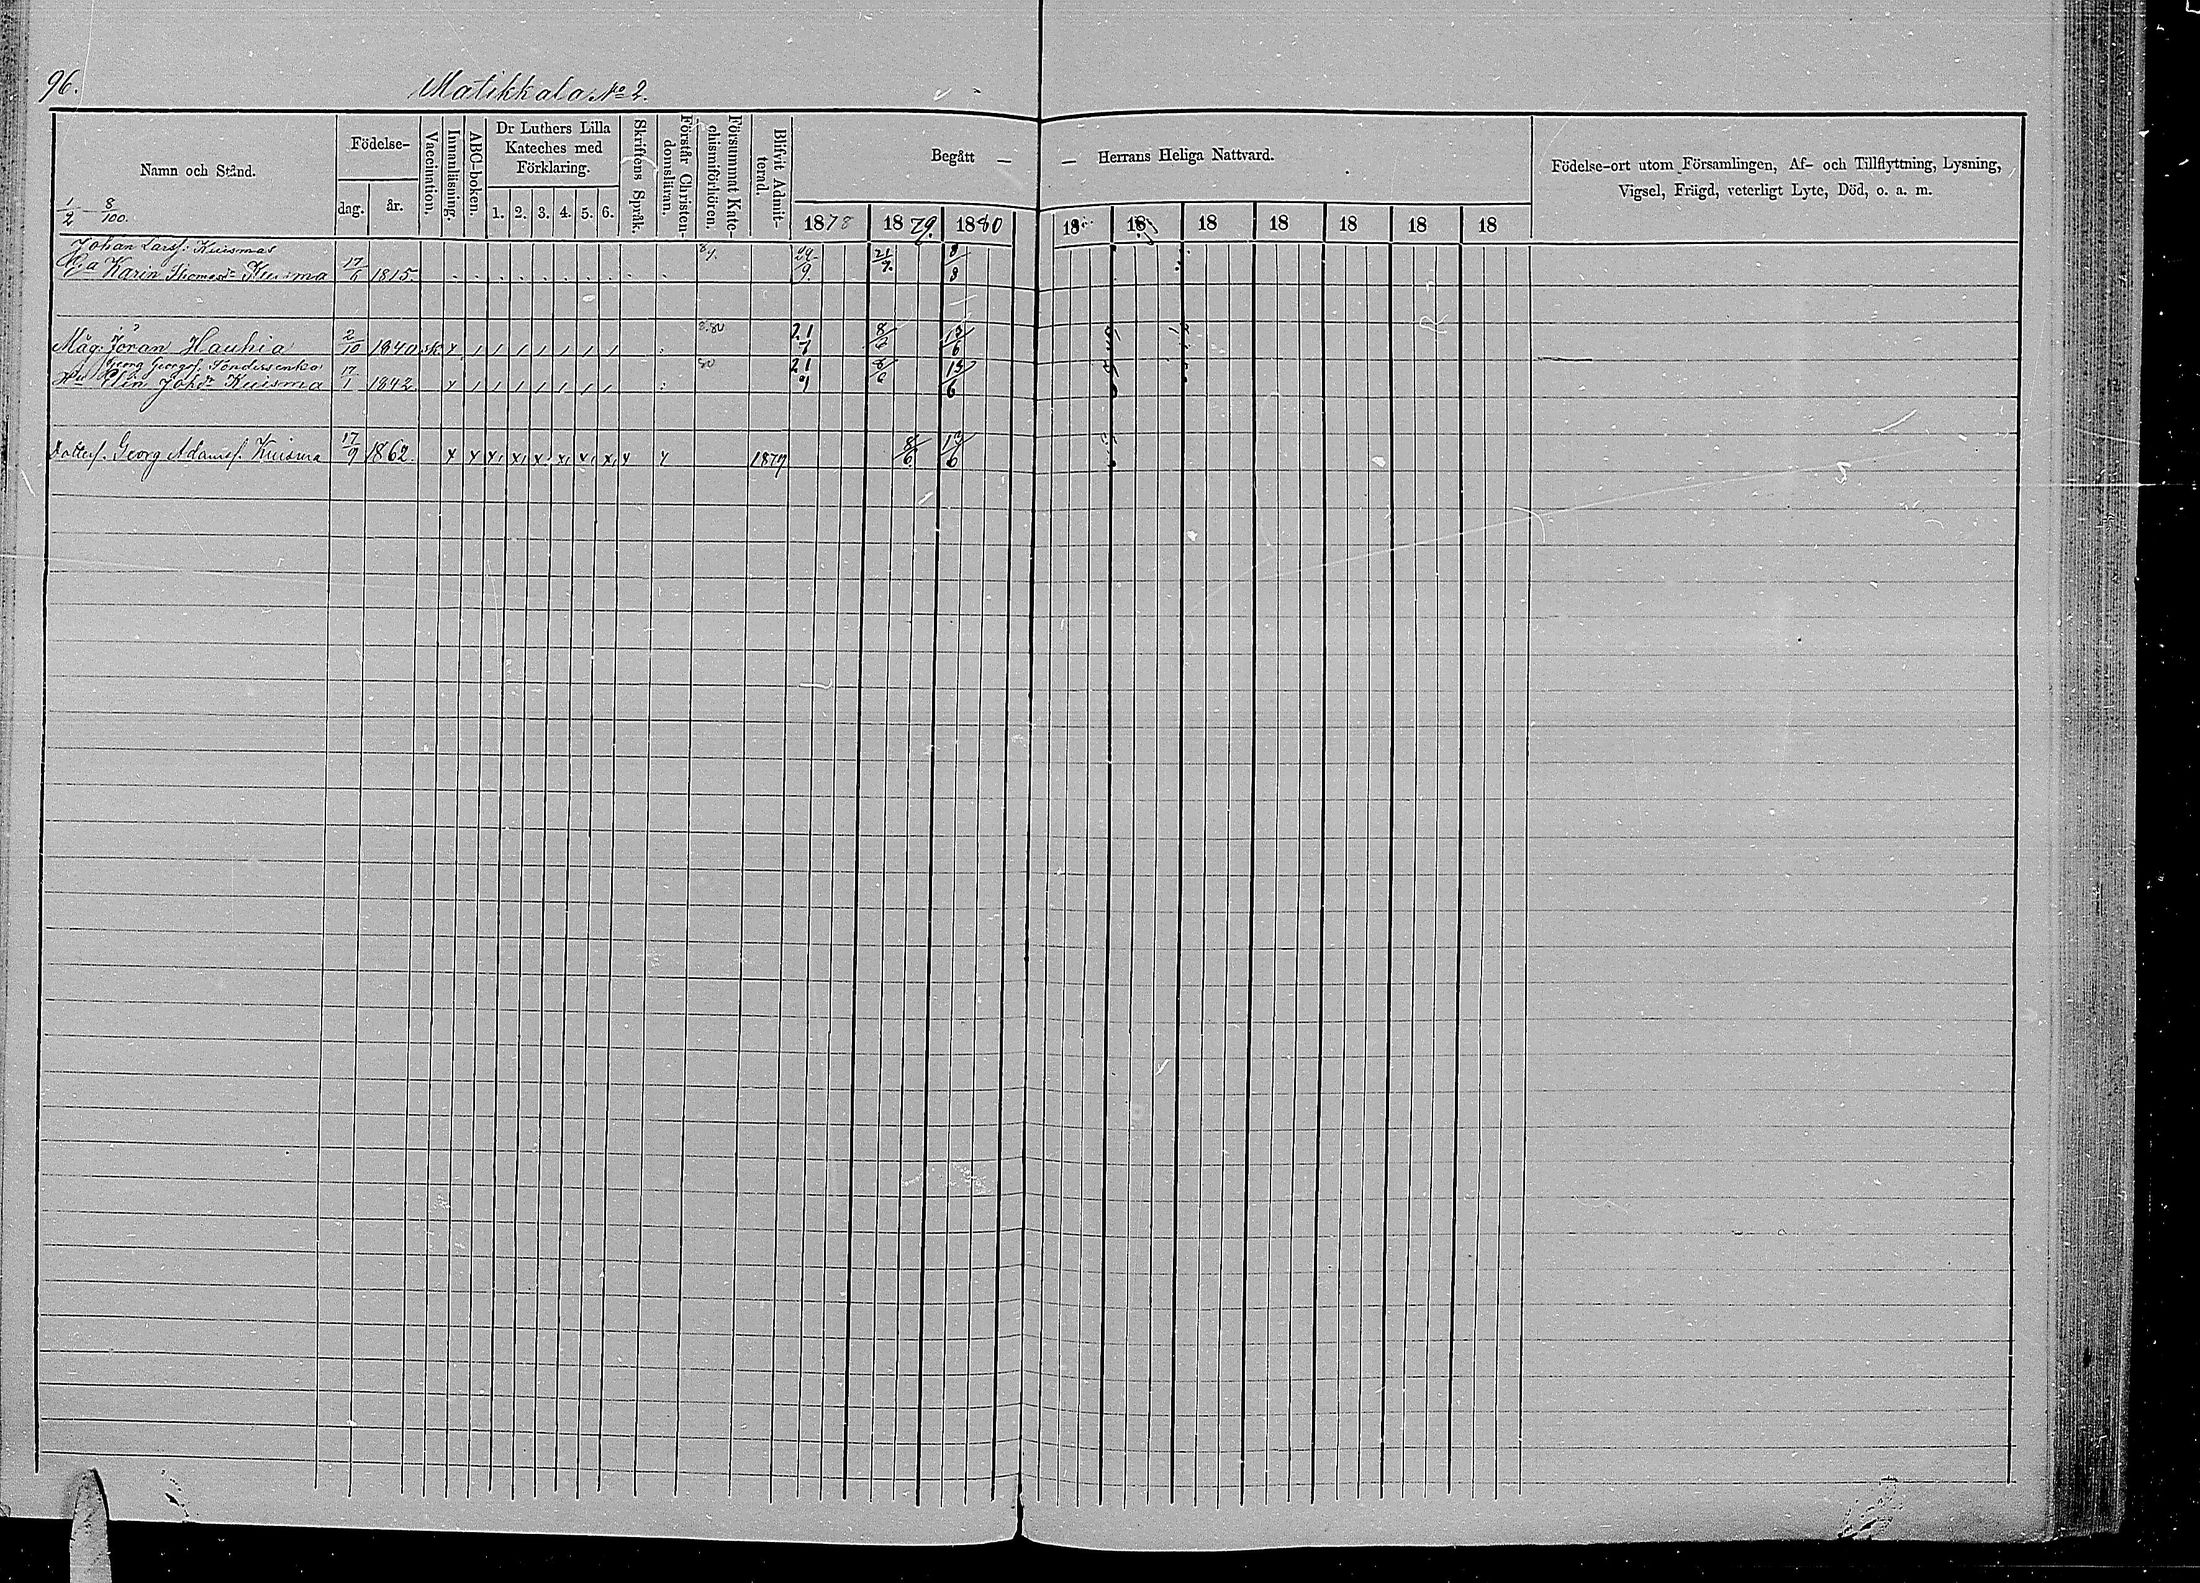 96.
Matikkala No 2.
Namn och Stånd.
1/2 — 8/100.
Födelse-
dag.
år.
Vaccination.
Innanläsning.
ABC-boken.
Dr Luthers Lilla
Kateches med
Förklaring.
1. 2. 3. 4. 5. 6.
Skriftens Språk.
Förstår Christen-
domsläran.
Försummat Kate-
chismiförhören.
Blifvit Admit-
terad.
Begått —
— Herrans Heliga Nattvard.
1878 1879. 1880 18 18 18 18 18 18 18
Födelse-ort utom Församlingen, Af- och Tillflyttning, Lysning,
Vigsel, Frägd, veterligt Lyte, Död, o. a. m.
Johan Larsf. Kuismas
Karin Thomasdr Kuisma 17/6 1815. 24/9. 21/9. 8/8
Måg. Jöran Hauhia 2/10 1840 sk x / / / / / / / 21/9 8/6 13/6
Georg Georgsf.
Hu Elin Johdr Kuisma 17/1 1842 x / / / / / / / 21/9 8/6 13/6
Dotterf. Georg Adamsf. Kuisma 17/9 1862. x x x x x x x x x x 1879 8/6 13/6